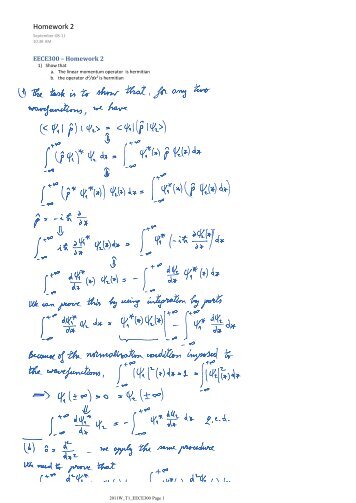 Homework 2
September-08-11
10:38 AM
EECE300 – Homework 2
1) Show that
a. The linear momentum operator is hermitian
b. the operator d²/dx² is hermitian
(1) The task is to show that, for any two
wavefunctions, we have
(<ψ₁| p̂) |ψ₂> = <ψ₁| (p̂ |ψ₂>)
⇕
∫_{-∞}^{+∞} (p̂ ψ₁)* ψ₂ dx = ∫_{-∞}^{+∞} ψ₁*(x) p̂ ψ₂(x) dx
∫_{-∞}^{+∞} (p̂* ψ₁*(x)) ψ₂(x) dx = ∫_{-∞}^{+∞} ψ₁*(x) (p̂ ψ₂(x)) dx
p̂ = -iħ ∂/∂x
⇓
∫_{-∞}^{+∞} iħ ∂ψ₁*/∂x ψ₂(x) dx = ∫_{-∞}^{+∞} ψ₁* (-iħ ∂ψ₂(x)/∂x) dx
⇕
∫_{-∞}^{+∞} dψ₁*/dx (x) ψ₂(x) dx = - ∫_{-∞}^{+∞} dψ₂/dx ψ₁*(x) dx
We can prove this by using integration by parts
∫_{-∞}^{+∞} dψ₁*/dx ψ₂ dx = ψ₁*(x) ψ₂(x) |_{-∞}^{+∞} - ∫_{-∞}^{+∞} ψ₁* dψ₂/dx dx
Because of the normalization condition imposed to
the wavefunctions, ∫_{-∞}^{+∞} |ψ₁|²(x) dx = 1 = ∫_{-∞}^{+∞} |ψ₂|²(x) dx
⟹ ψ₁(±∞) = 0 = ψ₂(±∞)
⇓
∫_{-∞}^{+∞} dψ₁*/dx ψ₂ = - ∫_{-∞}^{+∞} ψ₁* dψ₂/dx dx q.e.d.
(b) ô = d²/dx² - we apply the same procedure
We need to prove that
2011W_T1_EECE300 Page 1